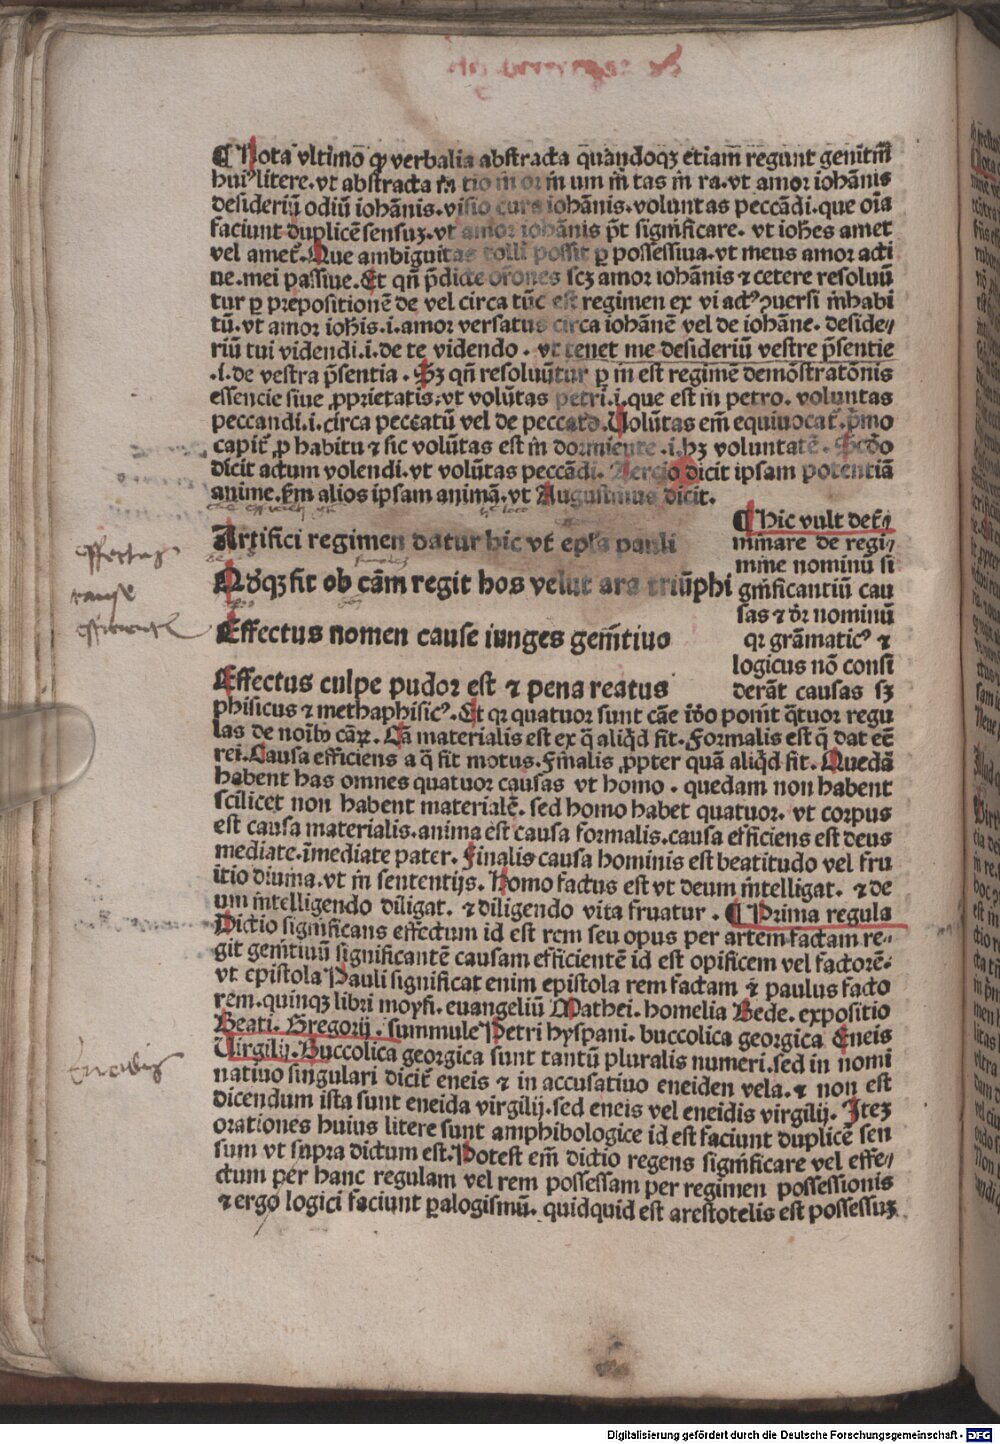 de regimine gti
¶ Nota vltimo ꝙ verbalia abstracta quandoqꝫ etiam̄ regunt genitiū
huiꝰ litere. vt abstracta in tio in or in um in tas in ra. vt amor iohānis
desideriū odiū iohānis. visio cura iohānis. voluntas peccādi. que oīa
faciunt duplicē sensuꝫ. vt amor iohānis pt̄ significare. vt ioh̄es amet
vel amet̄. Que ambiguitas tolli possit ꝑ possessiua. vt meus amor acti
ue. mei passiue. Et qn̄ p̄dicte or̄ones scꝫ amor iohānis ⁊ cetere resoluū
tur ꝑ prepositionē de vel circa tūc est regimen ex vi actꝰ ꝯuersi inhabi
tū. vt amor ioh̄is .i. amor versatus circa iohānē vel de iohāne. deside⸗
riū tui videndi .i. de te videndo. vt tenet me desideriū vestre p̄sentie
.i. de vestra p̄sentia. Sꝫ qn̄ resoluūtur ꝑ in est regimē demōstratōnis
essencie siue ꝓprietatis. vt volūtas petri .i. que est in petro. voluntas
peccandi .i. circa peccatū vel de peccato. Uolūtas em̄ equiuocat̄. p̄mo
capit̄ ꝓ habitu ⁊ sic volūtas est in dormiente .i. hꝫ voluntatē. Scd̄o
dicit actum volendi. vt volūtas peccādi. Tercio dicit ipsam potentiā
anime. ẜm alios ipsam animā. vt Augustinus dicit.
Artifici regimen datur hic vt ep̄la pauli
Adqꝫ fit ob cām regit hos velut ara triūphi
Effectus nomen cause iunges genitiuo
Effectus culpe pudor est ⁊ pena reatus
¶ Hic vult det̄⸗
minare de regi⸗
mine nominū si
gnificantiū cau
sas ⁊ dr̄ nominū
qr grāmaticꝰ ⁊
logicus nō consi
derāt causas sꝫ
phisicus ⁊ methaphisicꝰ. Et qr quatuor sunt cāe ido ponit q̄tuor regu
las de noībꝰ cāꝝ. Cā materialis est ex q̄ aliqd̄ fit. Formalis est q̄ dat eē
rei. Causa efficiens a q̄ fit motus. Finalis ꝓpter quā aliqd̄ fit. Quedā
habent has omnes quatuor causas vt homo. quedam non habent
scilicet non habent materialē. sed homo habet quatuor. vt corpus
est causa materialis. anima est causa formalis. causa efficiens est deus
mediate. īmediate pater. Finalis causa hominis est beatitudo vel fru
itio diuina. vt in sententijs. Homo factus est vt deum intelligat. ⁊ de
um intelligendo diligat. ⁊ diligendo vita fruatur. ¶ Prima regula
Dictio significans effectum id est rem seu opus per artem factam re⸗
git genitiuū significantē causam efficientē id est opificem vel factorē.
vt epistola Pauli significat enim epistola rem factam ⁊ paulus facto
rem. quinqꝫ libri moysi. euangeliū Mathei. homelia Bede. expositio
Beati. Gregorij. summule Petri hyspani. buccolica georgica Eneis
Uirgilij. Buccolica georgica sunt tantū pluralis numeri. sed in nomi
natiuo singulari dicit̄ eneis ⁊ in accusatiuo eneiden vela. ⁊ non est
dicendum ista sunt eneida virgilij. sed eneis vel eneidis virgilij. Iteꝫ
orationes huius litere sunt amphibologice id est faciunt duplicē sen
sum vt supra dictum est. Potest em̄ dictio regens significare vel effe⸗
ctum per hanc regulam vel rem possessam per regimen possessionis
⁊ ergo logici faciunt ꝑalogismū. quidquid est arestotelis est possessuꝫ
effectus
cause
efficientis
Eneidis
Digitalisierung gefördert durch die Deutsche Forschungsgemeinschaft - DFG